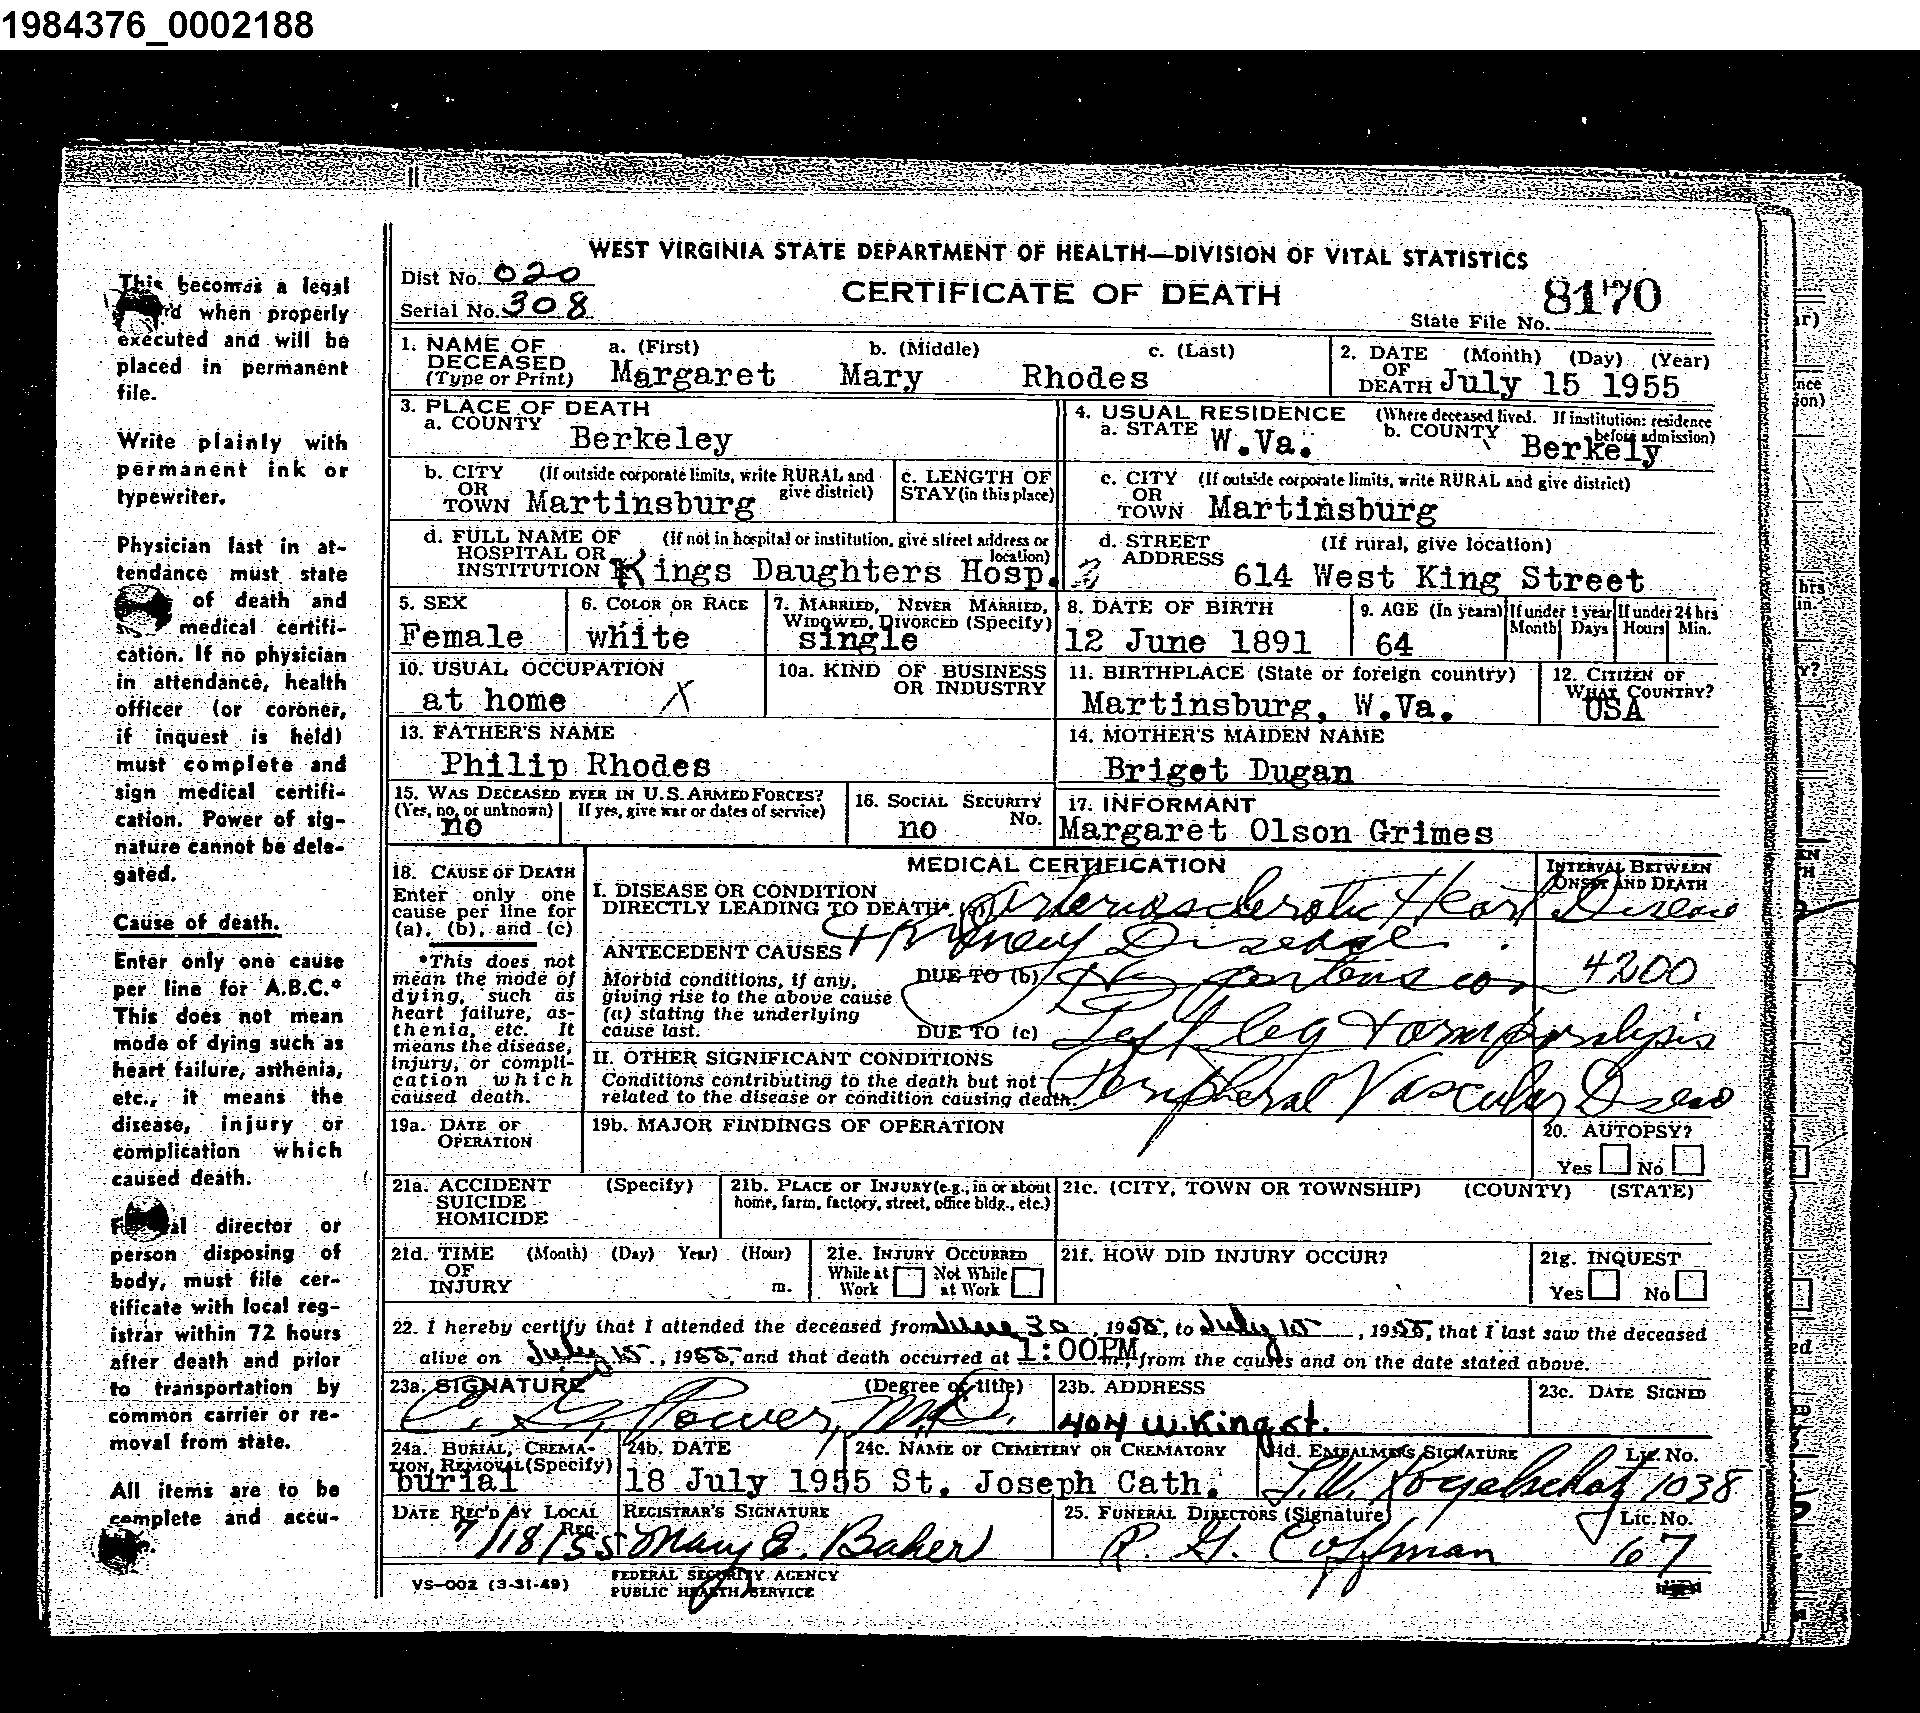 1984376_0002188
This becomes a legal
when properly
executed and will be
placed in permanent
file.
Write plainly with
permanent ink or
typewriter.
Physician last in at-
tendance must state
of death and
medical certifi-
cation. If no physician
in attendance, health
officer (or coroner,
if inquest is held)
must complete and
sign medical certifi-
cation. Power of sig-
nature cannot be dele-
gated.
Cause of death.
Enter only one cause
per line for A.B.C.*
This does not mean
mode of dying such as
heart failure, asthenia,
etc., it means the
disease, injury or
complication which
caused death.
director or
person disposing of
body, must file cer-
tificate with local reg-
istrar within 72 hours
after death and prior
to transportation by
common carrier or re-
moval from state.
All items are to be
complete and accu-
WEST VIRGINIA STATE DEPARTMENT OF HEALTH—DIVISION OF VITAL STATISTICS
Dist No. 020
CERTIFICATE OF DEATH
8170
Serial No. 308
State File No.
1. NAME OF DECEASED (Type or Print) a. (First) b. (Middle) c. (Last)
Margaret Mary Rhodes
2. DATE OF DEATH (Month) (Day) (Year)
July 15 1955
3. PLACE OF DEATH
a. COUNTY Berkeley
4. USUAL RESIDENCE (Where deceased lived. If institution: residence before admission)
a. STATE W.Va. b. COUNTY Berkely
b. CITY OR TOWN (If outside corporate limits, write RURAL and give district) Martinsburg
c. LENGTH OF STAY (in this place)
c. CITY OR TOWN (If outside corporate limits, write RURAL and give district) Martinsburg
d. FULL NAME OF HOSPITAL OR INSTITUTION (If not in hospital or institution, give street address or location) Kings Daughters Hosp.
d. STREET ADDRESS (If rural, give location) 614 West King Street
5. SEX Female
6. COLOR OR RACE white
7. MARRIED, NEVER MARRIED, WIDOWED, DIVORCED (Specify) single
8. DATE OF BIRTH 12 June 1891
9. AGE (In years) 64
If under 1 year Month Days
If under 24 hrs Hours Min.
10. USUAL OCCUPATION at home X
10a. KIND OF BUSINESS OR INDUSTRY
11. BIRTHPLACE (State or foreign country) Martinsburg, W.Va.
12. CITIZEN OF WHAT COUNTRY? USA
13. FATHER'S NAME Philip Rhodes
14. MOTHER'S MAIDEN NAME Briget Dugan
15. WAS DECEASED EVER IN U.S. ARMED FORCES?
(Yes, no, or unknown) no
If yes, give war or dates of service)
16. SOCIAL SECURITY No. no
17. INFORMANT Margaret Olson Grimes
18. CAUSE OF DEATH
Enter only one
cause per line for
(a), (b), and (c)
*This does not
mean the mode of
dying, such as
heart failure, as-
thenia, etc. It
means the disease,
injury, or compli-
cation which
caused death.
MEDICAL CERTIFICATION
INTERVAL BETWEEN ONSET AND DEATH
I. DISEASE OR CONDITION
DIRECTLY LEADING TO DEATH* (a) Arteriosclerotic Heart Disease
+ Kidney Disease
ANTECEDENT CAUSES
Morbid conditions, if any,
giving rise to the above cause
(a) stating the underlying
cause last.
DUE TO (b) Hypertension 4200
DUE TO (c) Left leg + arm paralysis
II. OTHER SIGNIFICANT CONDITIONS
Conditions contributing to the death but not
related to the disease or condition causing death.
Peripheral Vascular Disease
19a. DATE OF OPERATION
19b. MAJOR FINDINGS OF OPERATION
20. AUTOPSY?
Yes No
21a. ACCIDENT SUICIDE HOMICIDE (Specify)
21b. PLACE OF INJURY (e.g., in or about home, farm, factory, street, office bldg., etc.)
21c. (CITY, TOWN OR TOWNSHIP) (COUNTY) (STATE)
21d. TIME OF INJURY (Month) (Day) Year) (Hour) m.
21e. INJURY OCCURRED
While at Work Not While at Work
21f. HOW DID INJURY OCCUR?
21g. INQUEST
Yes No
22. I hereby certify that I attended the deceased from June 30, 1955, to July 15, 1955, that I last saw the deceased
alive on July 15, 1955, and that death occurred at 1:00PM m., from the causes and on the date stated above.
23a. SIGNATURE (Degree or title)
C. G. Power, M.D.
23b. ADDRESS
404 W. King St.
23c. DATE SIGNED
24a. BURIAL, CREMATION, REMOVAL (Specify) burial
24b. DATE 18 July 1955
24c. NAME OF CEMETERY OR CREMATORY St. Joseph Cath.
24d. EMBALMER'S SIGNATURE Lic. No. 1038
DATE REC'D BY LOCAL REG. 7/18/55
REGISTRAR'S SIGNATURE Mary E. Baker
25. FUNERAL DIRECTORS (Signature) R. G. Coffman Lic. No. 67
VS-002 (3-31-49)
FEDERAL SECURITY AGENCY
PUBLIC HEALTH SERVICE